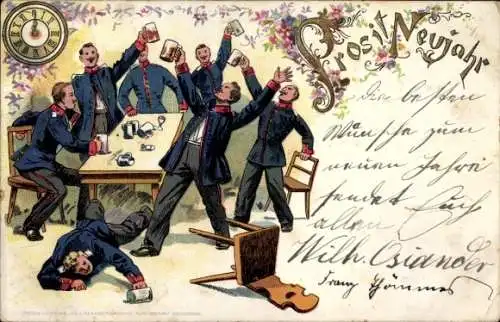 Prosit Neujahr
Die besten
Wünsche zum
neuen Jahre
sendet Euch
allen
Wilh. Osiander
Franz